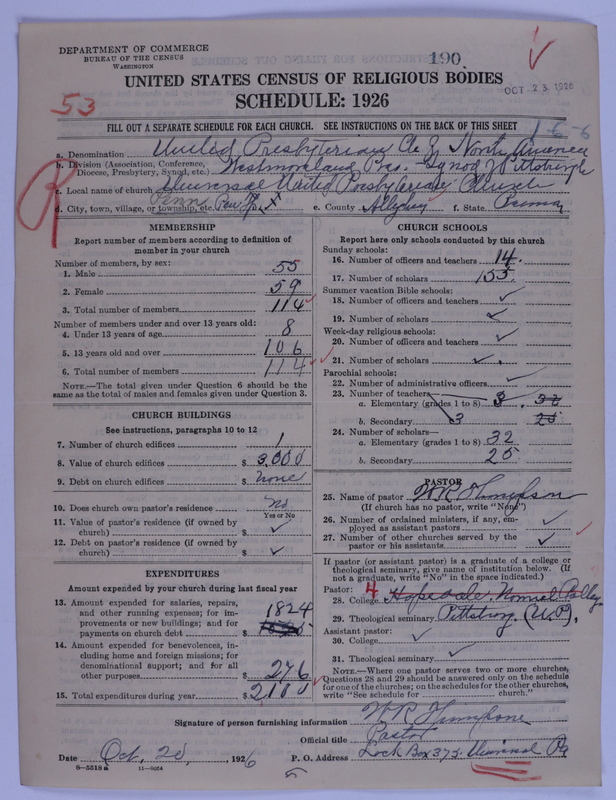 DEPARTMENT OF COMMERCE
BUREAU OF THE CENSUS
WASHINGTON
190
UNITED STATES CENSUS OF RELIGIOUS BODIES
OCT 23 1926
53
SCHEDULE: 1926
FILL OUT A SEPARATE SCHEDULE FOR EACH CHURCH. SEE INSTRUCTIONS ON THE BACK OF THIS SHEET
1-6-6
a. Denomination United Presbyterian Ch of North America
b. Division (Association, Conference, Diocese, Presbytery, Synod, etc.) Westmoreland Pres. - Synod of Pittsburgh
c. Local name of church Universal United Presbyterian Church
d. City, town, village, or township, etc. Penn Twp
e. County Allegheny f. State Penna
MEMBERSHIP
Report number of members according to definition of member in your church
Number of members, by sex:
1. Male 55
2. Female 59
3. Total number of members 114
Number of members under and over 13 years old:
4. Under 13 years of age 8
5. 13 years old and over 106
6. Total number of members 114
NOTE.—The total given under Question 6 should be the same as the total of males and females given under Question 3.
CHURCH BUILDINGS
See instructions, paragraphs 10 to 12
7. Number of church edifices 1
8. Value of church edifices $ 3,000
9. Debt on church edifices $ none
10. Does church own pastor's residence no
Yes or No
11. Value of pastor's residence (if owned by church) $ ✓
12. Debt on pastor's residence (if owned by church) $ ✓
EXPENDITURES
Amount expended by your church during last fiscal year
13. Amount expended for salaries, repairs, and other running expenses; for improvements or new buildings; and for payments on church debt $ 1824
14. Amount expended for benevolences, including home and foreign missions; for denominational support; and for all other purposes $ 276
15. Total expenditures during year $ 2100
CHURCH SCHOOLS
Report here only schools conducted by this church
Sunday schools:
16. Number of officers and teachers 14
17. Number of scholars 155
Summer vacation Bible schools:
18. Number of officers and teachers ✓
19. Number of scholars ✓
Week-day religious schools:
20. Number of officers and teachers ✓
21. Number of scholars ✓
Parochial schools:
22. Number of administrative officers ✓
23. Number of teachers—
a. Elementary (grades 1 to 8) 3 32
b. Secondary 3 25
24. Number of scholars—
a. Elementary (grades 1 to 8) 32
b. Secondary 25
PASTOR
25. Name of pastor W R Thompson
(If church has no pastor, write "None")
26. Number of ordained ministers, if any, employed as assistant pastors ✓
27. Number of other churches served by the pastor or his assistants ✓
If pastor (or assistant pastor) is a graduate of a college or theological seminary, give name of institution below. (If not a graduate, write "No" in the space indicated.)
Pastor: 4
28. College Hopedale Normal College
29. Theological seminary Pittsburg (U.P.),
Assistant pastor:
30. College ✓
31. Theological seminary ✓
NOTE.—Where one pastor serves two or more churches, Questions 28 and 29 should be answered only on the schedule for one of the churches; on the schedules for the other churches, write "See schedule for church."
Signature of person furnishing information W R Thompson
Official title Pastor
Date Oct. 20, 1926 P. O. Address Lock Box 375 Universal Pa
8-5518 a 11-9054